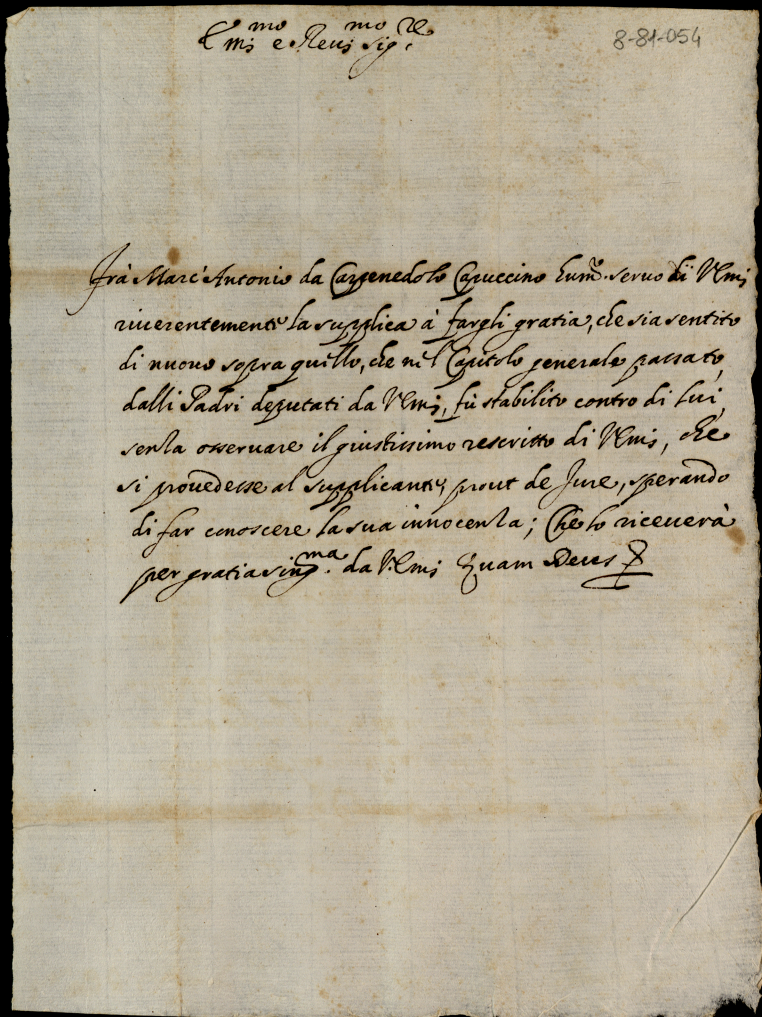 Emi.mo e Reui.mo Sig.re
8-81-054
Frà Marc'Antonio da Carpenedolo Capuccino hum.o seruo di V.Emi.
riuerentemente la supplica à fargli gratia, che sia sentito
di nuouo sopra quello, che nel Capitolo generale passato,
dalli Padri deputati da V.Emi., fù stabilito contro di lui,
senza osseruare il giustissimo rescritto di V.Emi., che
si prouedesse al supplicante, prout de Jure, sperando
di far conoscere la sua innocenza; Che lo riceuerà
per gratia sing.ma da V.Emi. Quam Deus &